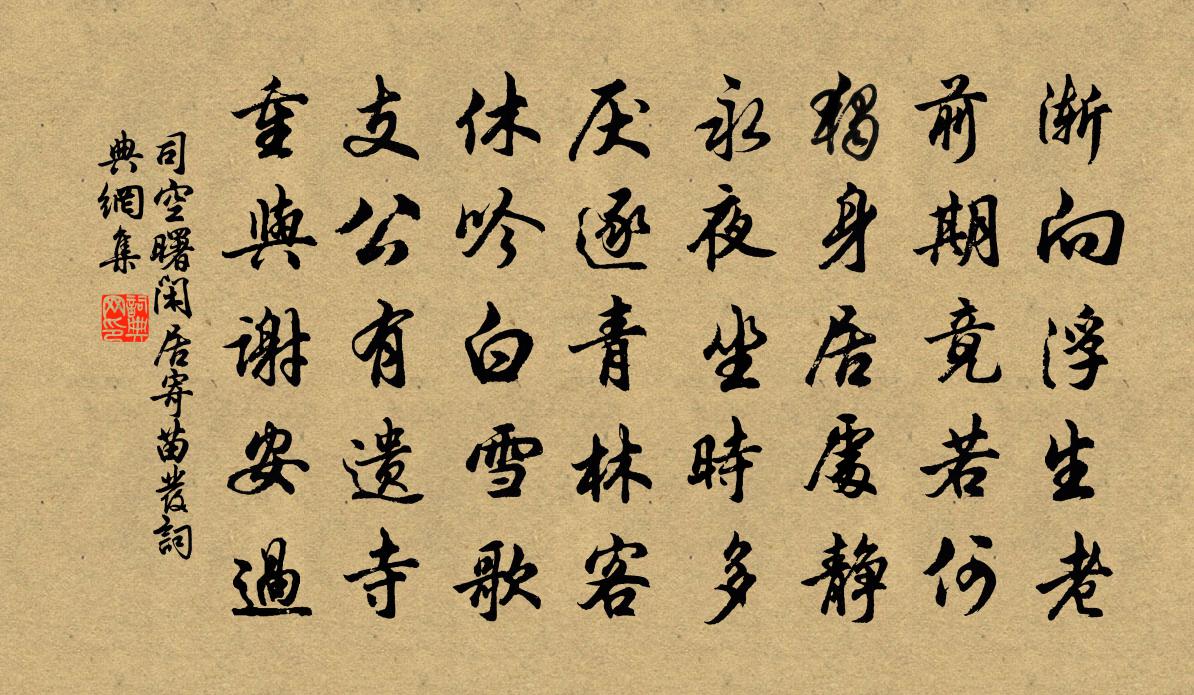 渐向浮生老
前期竟若何
獨身居處静
永夜坐時多
厌逐青林客
休吟白雪歌
支公有遗寺
重與謝安過
司空曙閑居寄苗發詞
典網集
詞典网印